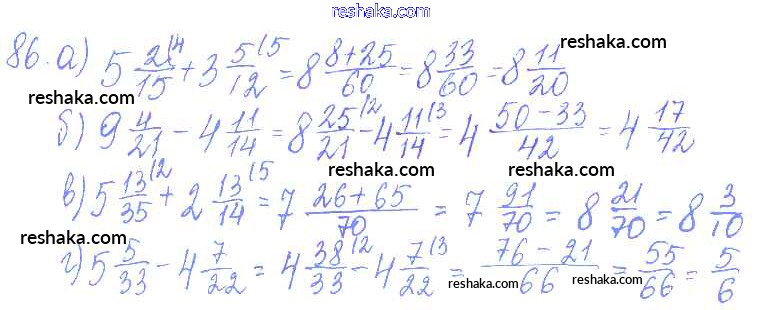 reshaka.com
86. а) 5 2/15 |4 + 3 5/12 |5 = 8 (8+25)/60 = 8 33/60 = 8 11/20
reshaka.com
reshaka.com
б) 9 4/21 - 4 11/14 = 8 25/21 |2 - 4 11/14 |3 = 4 (50-33)/42 = 4 17/42
reshaka.com
reshaka.com
в) 5 13/35 |2 + 2 13/14 |5 = 7 (26+65)/70 = 7 91/70 = 8 21/70 = 8 3/10
reshaka.com
reshaka.com
г) 5 5/33 - 4 7/22 = 4 38/33 |2 - 4 7/22 |3 = (76-21)/66 = 55/66 = 5/6
reshaka.com
reshaka.com